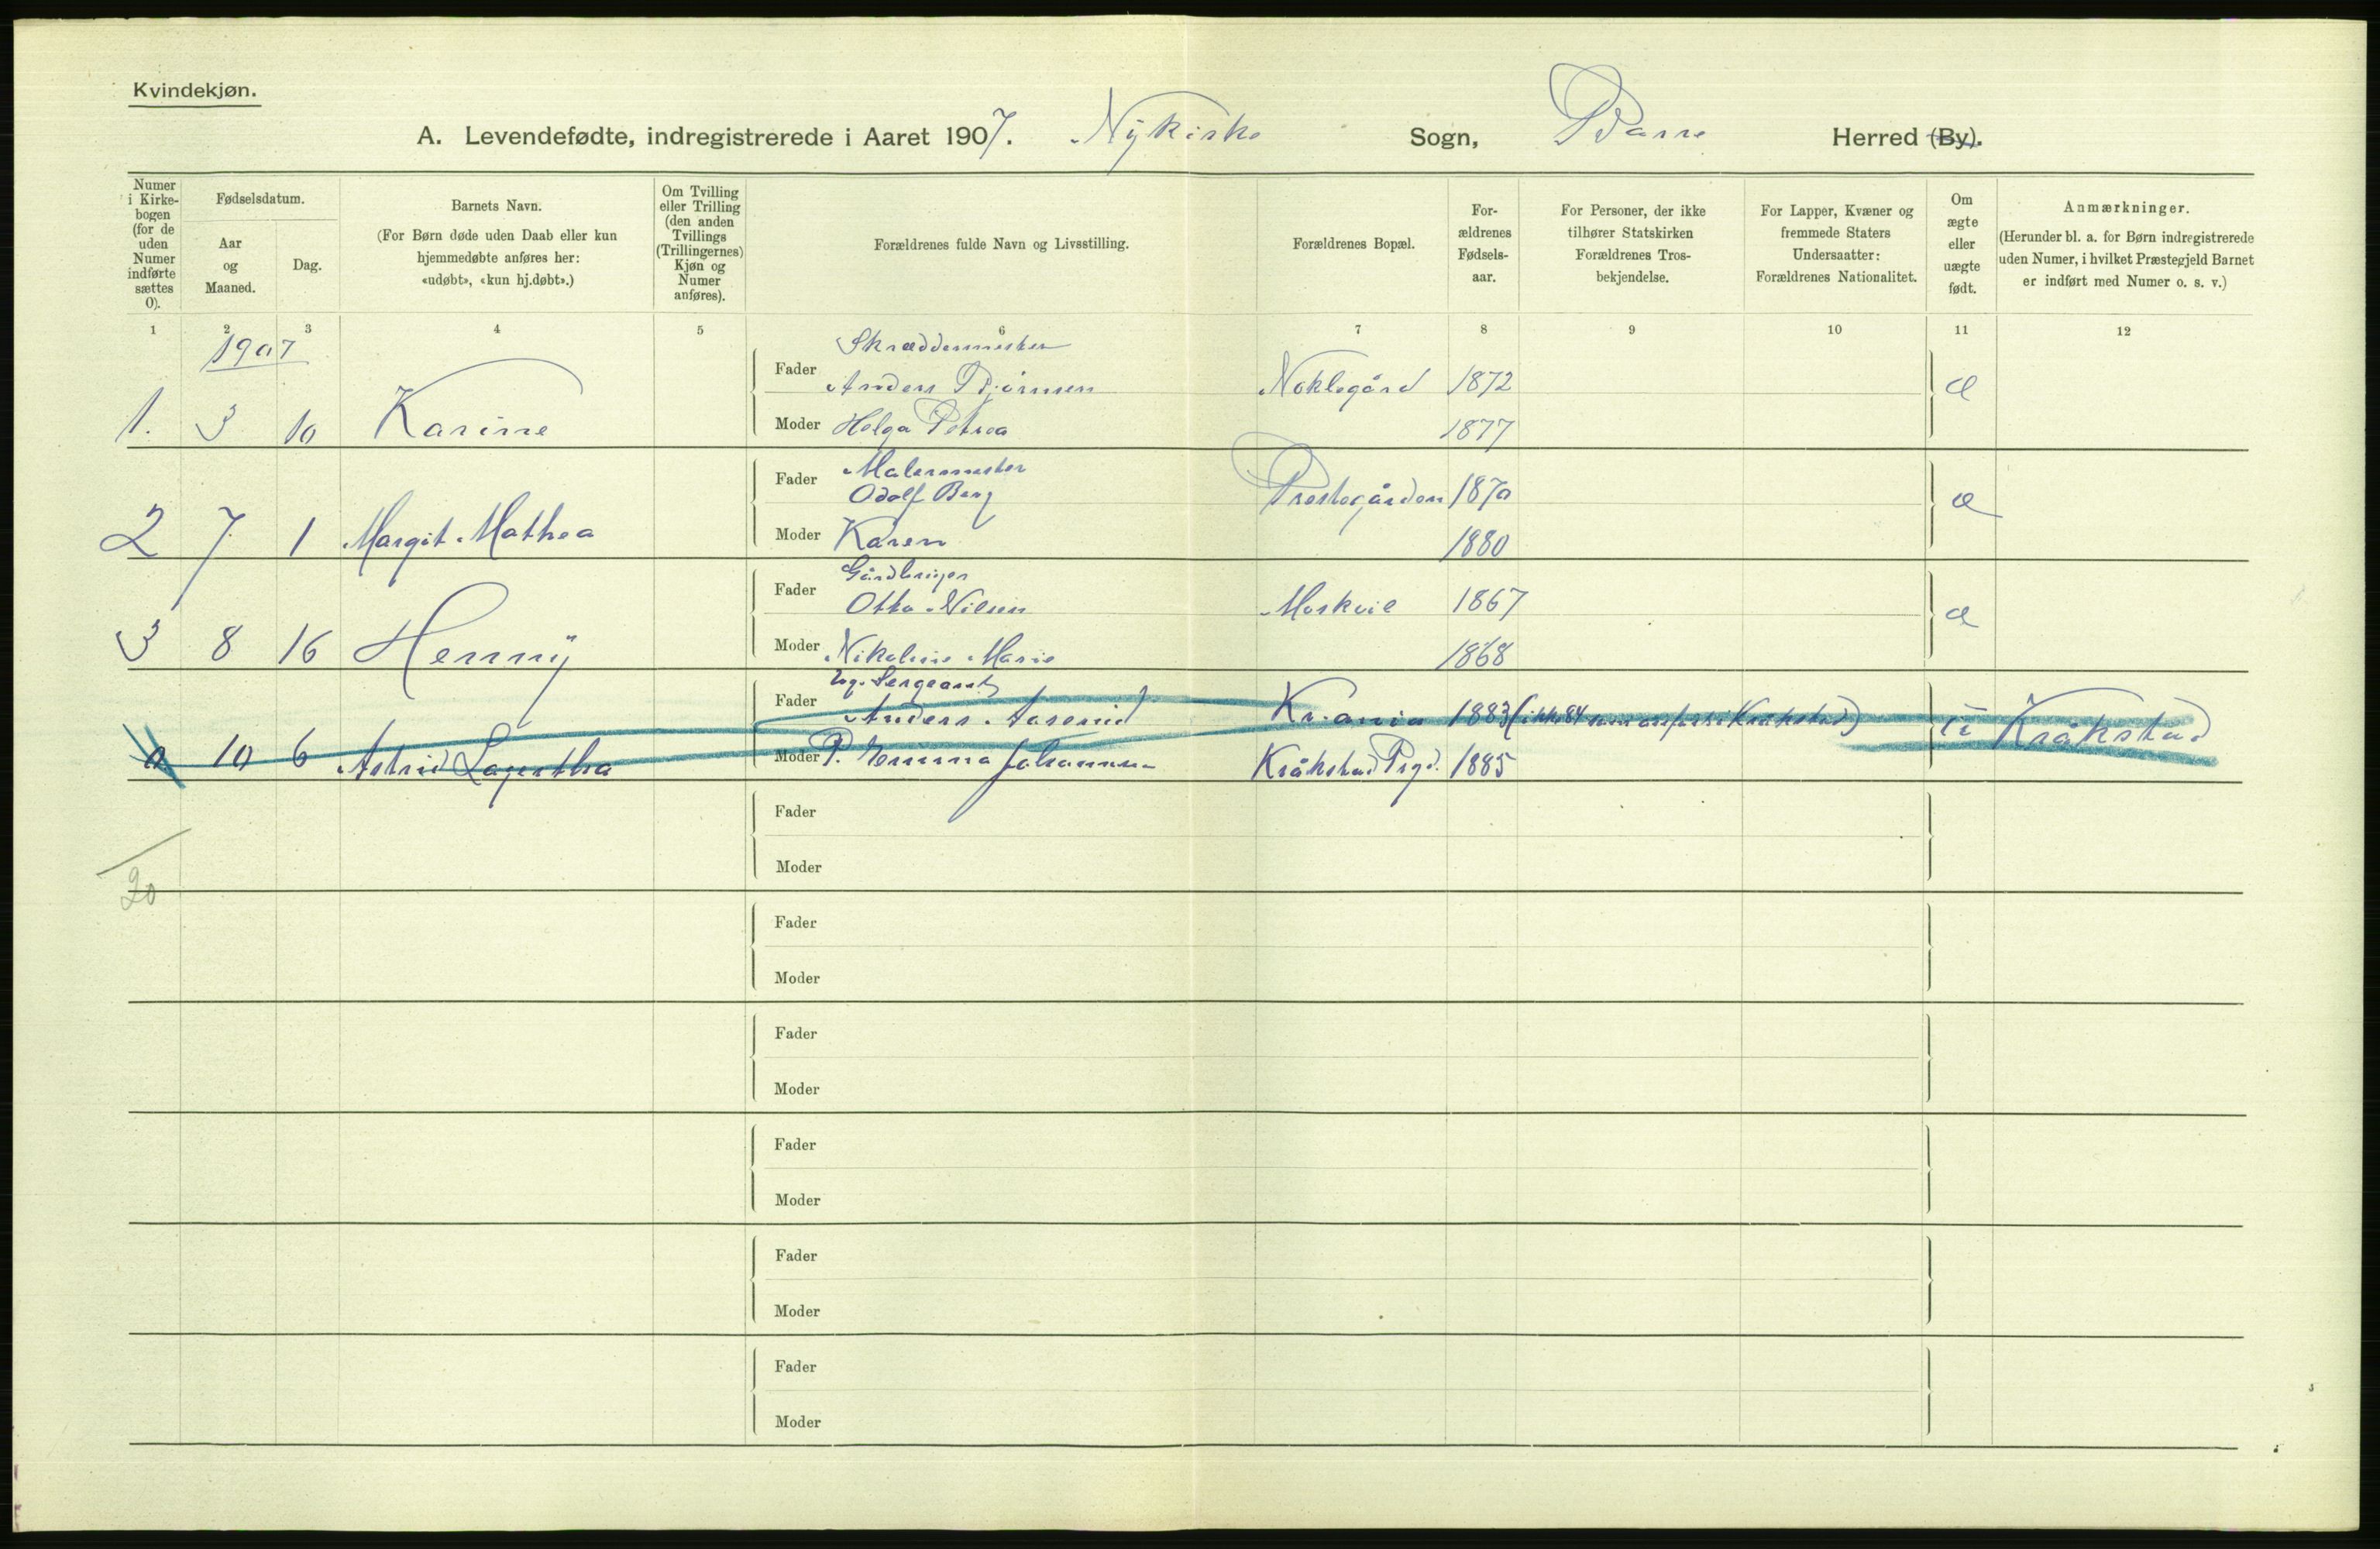 Kvindekjøn.
A. Levendefødte, indregistrerede i Aaret 1907. Nykirke Sogn, Borre Herred (By).
Numer i Kirkebogen (for de uden Numer indførte sættes 0).
Fødselsdatum.
Aar og Maaned.
Dag.
Barnets Navn.
(For Børn døde uden Daab eller kun hjemmedøbte anføres her: «udøbt», «kun hj.døbt».)
Om Tvilling eller Trilling (den anden Tvillings (Trillingernes) Kjøn og Numer anføres).
Forældrenes fulde Navn og Livsstilling.
Forældrenes Bopæl.
Forældrenes Fødselsaar.
For Personer, der ikke tilhører Statskirken Forældrenes Trosbekjendelse.
For Lapper, Kvæner og fremmede Staters Undersaatter: Forældrenes Nationalitet.
Om ægte eller uægte født.
Anmærkninger.
(Herunder bl. a. for Børn indregistrerede uden Numer, i hvilket Præstegjeld Barnet er indført med Numer o. s. v.)
1 2 3 4 5 6 7 8 9 10 11 12
1907
Skræddermester
Fader Anders Bjørnsen Noklegård 1872 æ
1. 3 10 Karine Moder Helga Petrea 1877
Malermester
Fader Odolf Berg Prestegården 1870 æ
2 7 1 Margit Mathea Moder Karen 1880
Gårdbruger
Fader Otto Nilsen 1867 æ
3 8 16 Henny Moder Nikoline Marie 1868
Ug. Sergeant
Fader Anders Kr.ania 1883 (ikke 84 som opført i Kråkstad) u Kråkstad
0 10 6 Astrid Lagertha Moder P. Emma Johannesen Kråkstad Prgd. 1885
Fader
Moder
20
Fader
Moder
Fader
Moder
Fader
Moder
Fader
Moder
Fader
Moder